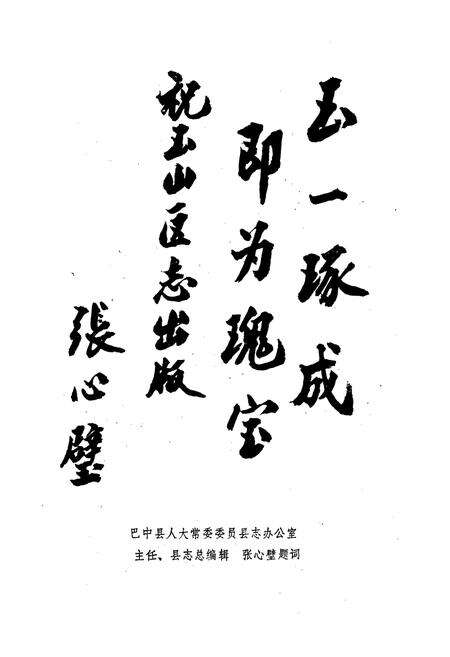 玉一琢成
即为瑰宝
祝玉山区志出版
張心璧
巴中县人大常委委员县志办公室
主任、县志总编辑 张心璧题词